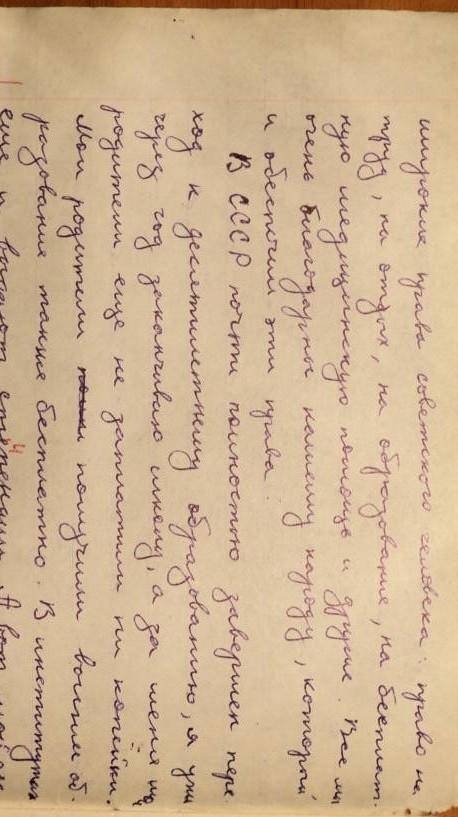 широкие права советского человека: право на
труд, на отдых, на образование, на бесплат-
ную медицинскую помощь и другие. Все мы
очень благодарны нашему народу, который
и обеспечил эти права.
В СССР почти полностью завершен пере-
ход к десятилетнему образованию, я уже
через год заканчиваю школу, а за меня мои
родители еще не заплатили ни копейки.
Мои родители получили высшее об-
разование также бесплатно. В институтах
еще и выдают стипендии. А вот